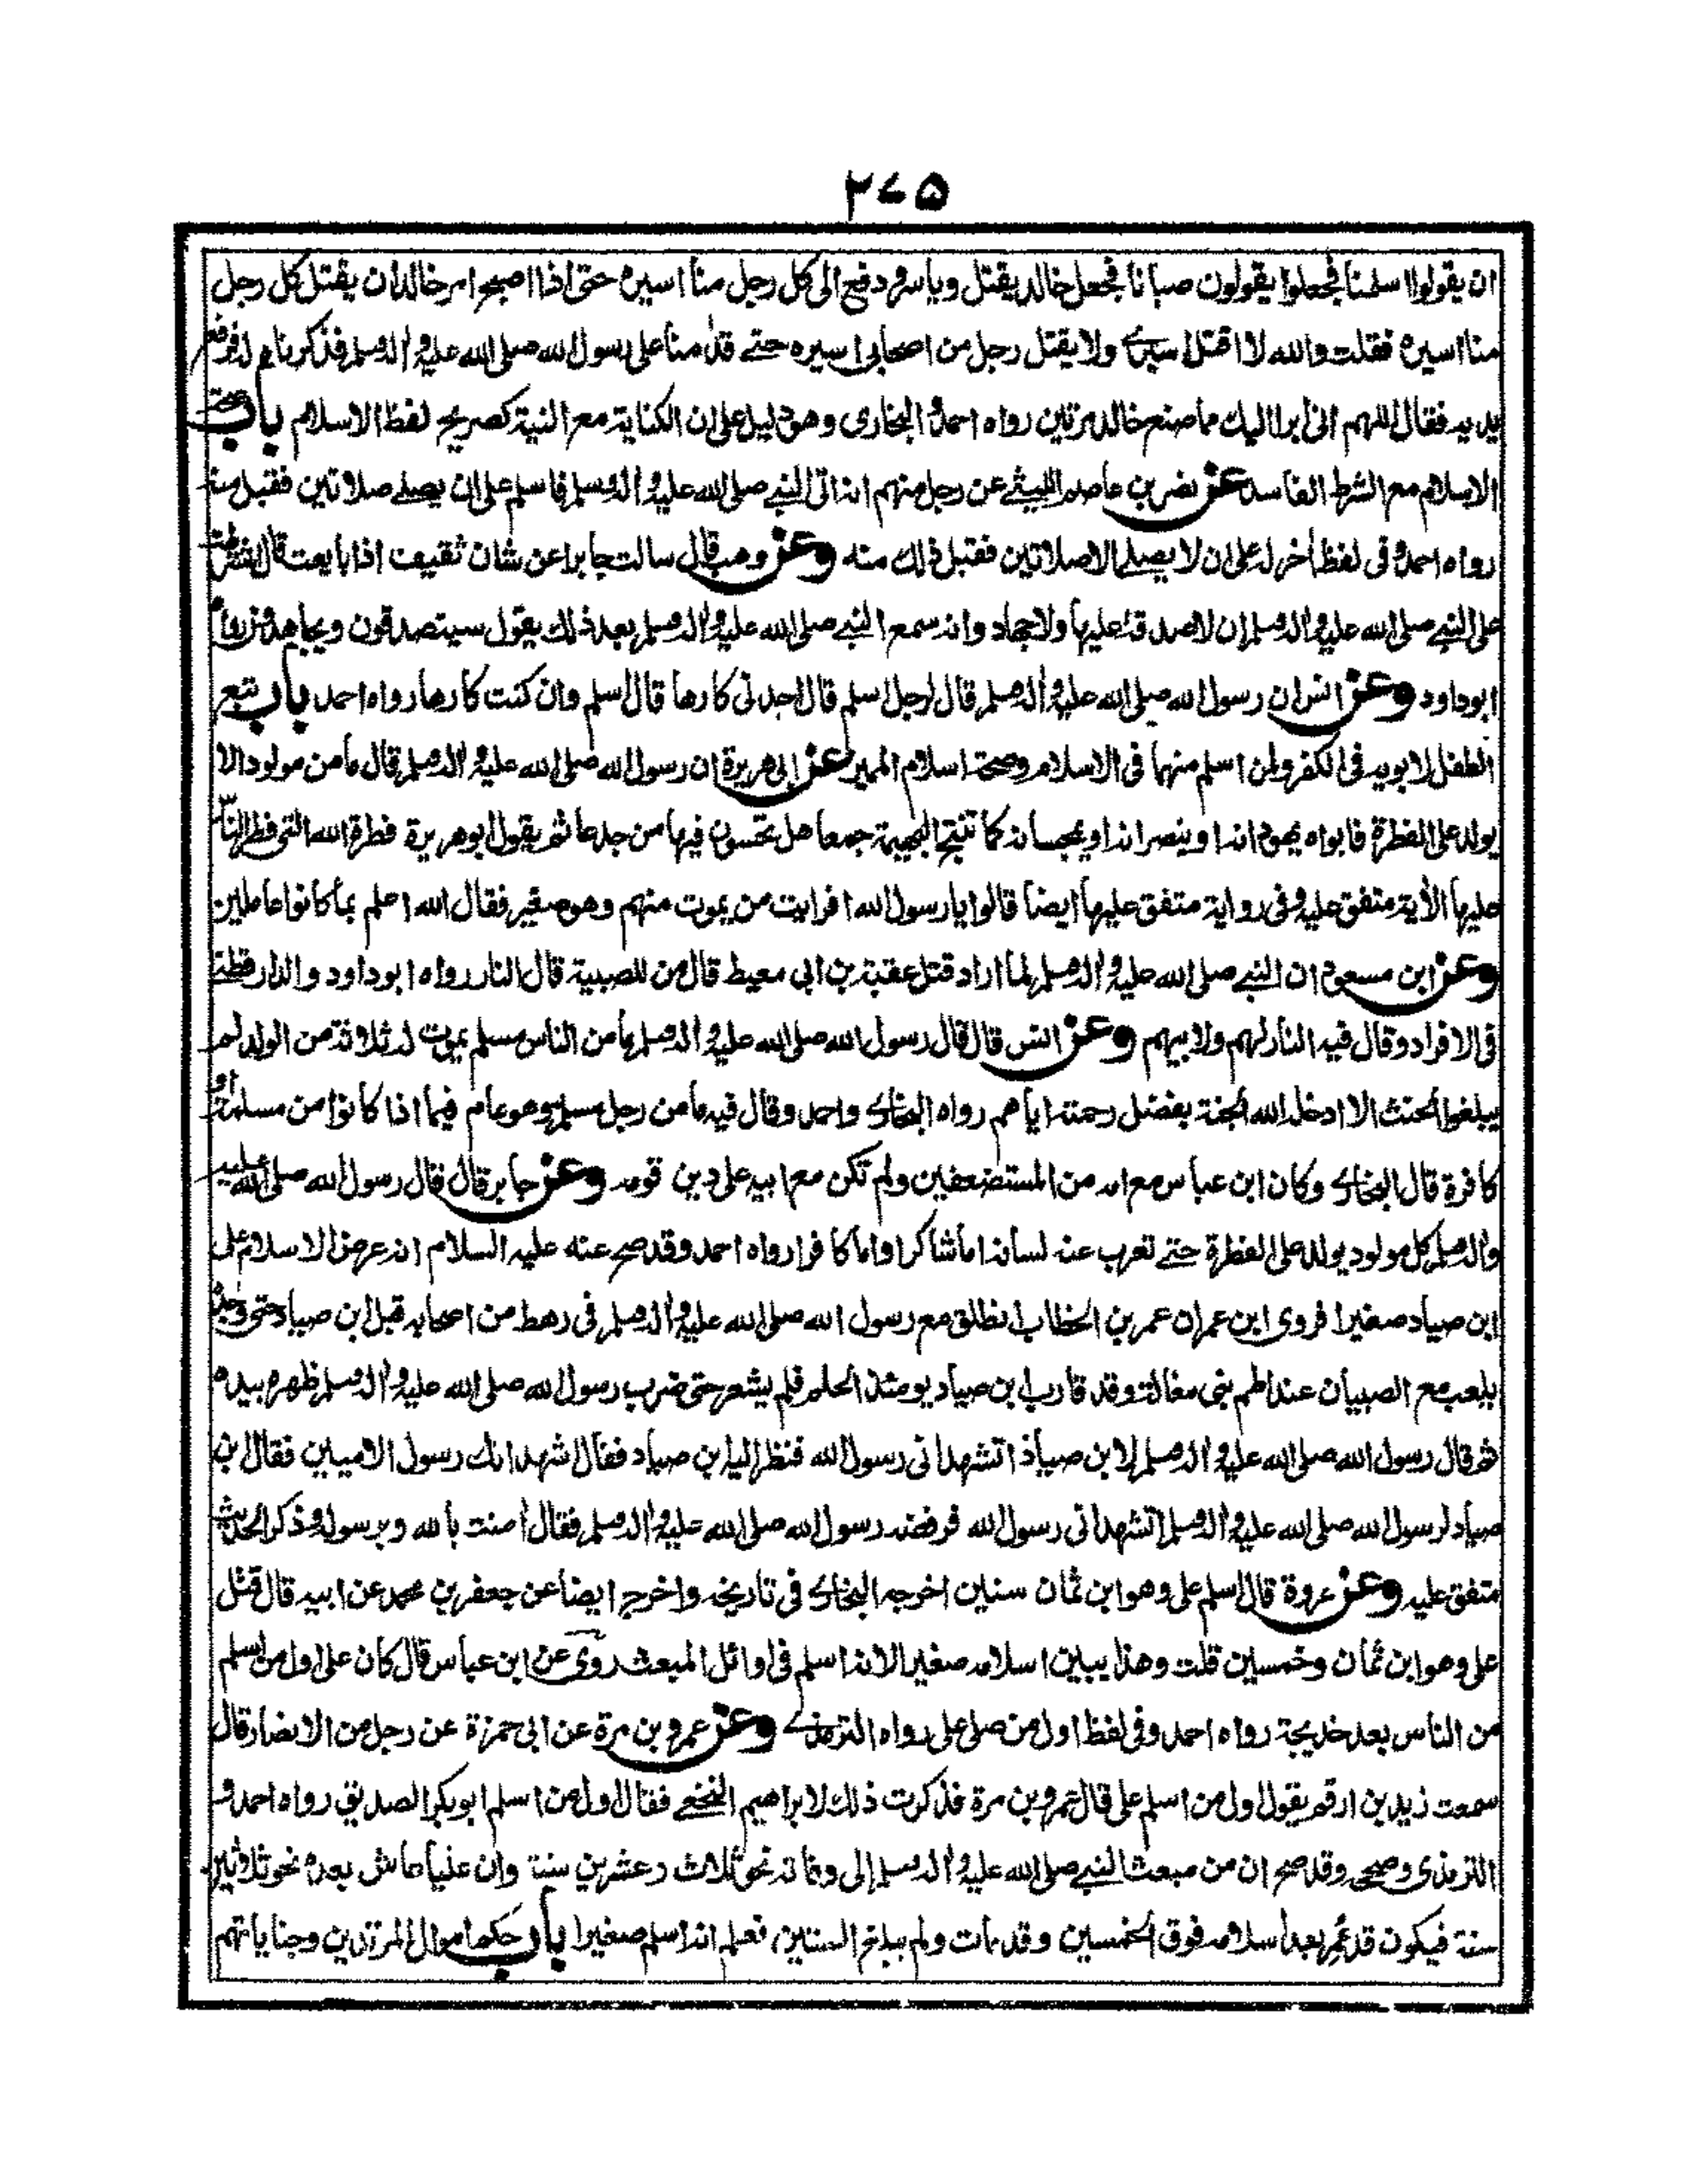 ٢٧٥
ان يقولوا اسلمنا فجعلوا يقولون صبانا صبانا فجعل خالد يقتل وياسر ودفع الى كل رجل منا اسيره حتى اذا اصبح امر خالد ان يقتل كل رجل
منا اسيره فقلت والله لا اقتل اسيرى ولا يقتل رجل من اصحابى اسيره حتى قدمنا على رسول الله صلى الله عليه واله وسلم فذكرنا له فرفع
يديه فقال اللهم انى ابرا اليك مما صنع خالد مرتين رواه احمد والبخارى وهو دليل على ان الكناية مع النية كصريح لفظ الاسلام باب صحة
الاسلام مع الشرط الفاسد عن نصر بن عاصم الليثى عن رجل منهم انه اتى النبى صلى الله عليه واله وسلم فاسلم على ان يصلى صلاتين فقبل منه
رواه احمد وفى لفظ اخر له على ان لا يصلى الا صلاتين فقبل ذلك منه وعن وهب قال سالت جابرا عن شان ثقيف اذا بايعت قال اشترطت
على النبى صلى الله عليه واله وسلم ان لا صدقة عليها ولا جهاد وانه سمع النبى صلى الله عليه واله وسلم بعد ذلك يقول سيتصدقون ويجاهدون رواه
ابوداود وعن انس ان رسول الله صلى الله عليه واله وسلم قال لرجل اسلم قال اجدنى كارها قال اسلم وان كنت كارها رواه احمد باب تبع
الطفل لابويه فى الكفر ولمن اسلم منهما فى الاسلام وصحة اسلام المميز عن ابى هريرة ان رسول الله صلى الله عليه واله وسلم قال ما من مولود الا
يولد على الفطرة فابواه يهودانه او ينصرانه او يمجسانه كما تنتج البهيمة جمعا هل تحسون فيها من جدعا ثم يقول ابوهريرة فطرة الله التى فطر الناس
عليها الأية متفق عليه وفى رواية متفق عليها ايضا قالوا يا رسول الله افرايت من يموت منهم وهو صغير فقال الله اعلم بما كانوا عاملين
وعن ابن مسعود ان النبى صلى الله عليه واله وسلم لما اراد قتل عقبة بن ابى معيط قال من للصبية قال النار رواه ابوداود والدارقطنى
فى الافراد وقال فيه النار لهم ولابيهم وعن انس قال قال رسول الله صلى الله عليه واله وسلم ما من الناس مسلم يموت له ثلاثة من الولد لم
يبلغوا الحنث الا ادخله الله الجنة بفضل رحمته اياهم رواه البخارى واحمد وقال فيه ما من رجل مسلم وهو عام فيما اذا كانوا من مسلمة او
كافرة قال البخارى وكان ابن عباس مع امه من المستضعفين ولم تكن مع ابيه على دين قومه وعن جابر قال قال رسول الله صلى الله عليه
واله وسلم كل مولود يولد على الفطرة حتى تعرب عنه لسانه اما شاكرا واما كافرا رواه احمد وقد صح عنه عليه السلام انه عرض الاسلام على
ابن صياد صغيرا فروى ابن عمر ان عمر بن الخطاب انطلق مع رسول الله صلى الله عليه واله وسلم فى رهط من اصحابه قبل ابن صياد حتى وجده
يلعب مع الصبيان عند اطم بنى مغالة وقد قارب ابن صياد يومئذ الحلم فلم يشعر حتى ضرب رسول الله صلى الله عليه واله وسلم ظهره بيده
ثم قال رسول الله صلى الله عليه واله وسلم لابن صياد اتشهد انى رسول الله فنظر اليه ابن صياد فقال اشهد انك رسول الاميين فقال ابن
صياد لرسول الله صلى الله عليه واله وسلم اتشهد انى رسول الله فرفضه رسول الله صلى الله عليه واله وسلم فقال امنت بالله وبرسوله وذكر الحديث
متفق عليه وعن عروة قال اسلم على وهو ابن ثمان سنين اخرجه البخارى فى تاريخه واخرج ايضا عن جعفر بن محمد عن ابيه قال قتل
على وهو ابن ثمان وخمسين قلت وهذا يبين اسلامه صغيرا لانه اسلم فى اوائل المبعث روى عن ابن عباس قال كان على اول من اسلم
من الناس بعد خديجة رواه احمد وفى لفظ اول من صلى على رواه الترمذى وعن عمرو بن مرة عن ابى حمزة عن رجل من الانصار قال
سمعت زيد بن ارقم يقول اول من اسلم على قال عمرو بن مرة فذكرت ذلك لابراهيم النخعى فقال اول من اسلم ابوبكر الصديق رواه احمد و
الترمذى وصححه وقد صح ان من مبعث النبى صلى الله عليه واله وسلم الى وفاته نحو ثلاث وعشرين سنة وان عليا عاش بعده نحو ثلاثين
سنة فيكون قد عمر بعد اسلامه فوق الخمسين وقد مات ولم يبلغ الستين فعلم انه اسلم صغيرا باب حكم اموال المرتدين وجناياتهم